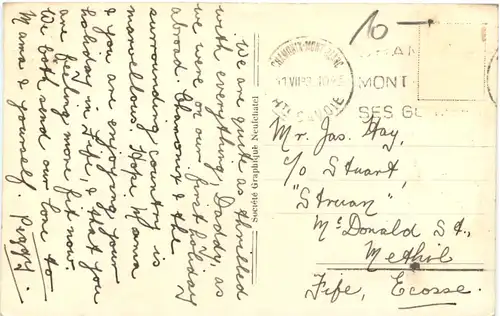 We are quite as thrilled
with everything, Daddy, as
we were on our first holiday
abroad. Chamonix & the
surrounding country is
marvellous. Hope Mama
& you are enjoying your
holiday in Fife, & that you
are feeling more fit now.
We both send our love to
Mama & yourself. Peggy.
Société Graphique Neuchatel
10-
CHAMONIX-MONT-BLANC
HTE SAVOIE
MONT
SES
Mr. Jas. Hay,
c/o Stuart,
"Struan"
McDonald St.,
Methil
Fife, Ecosse.